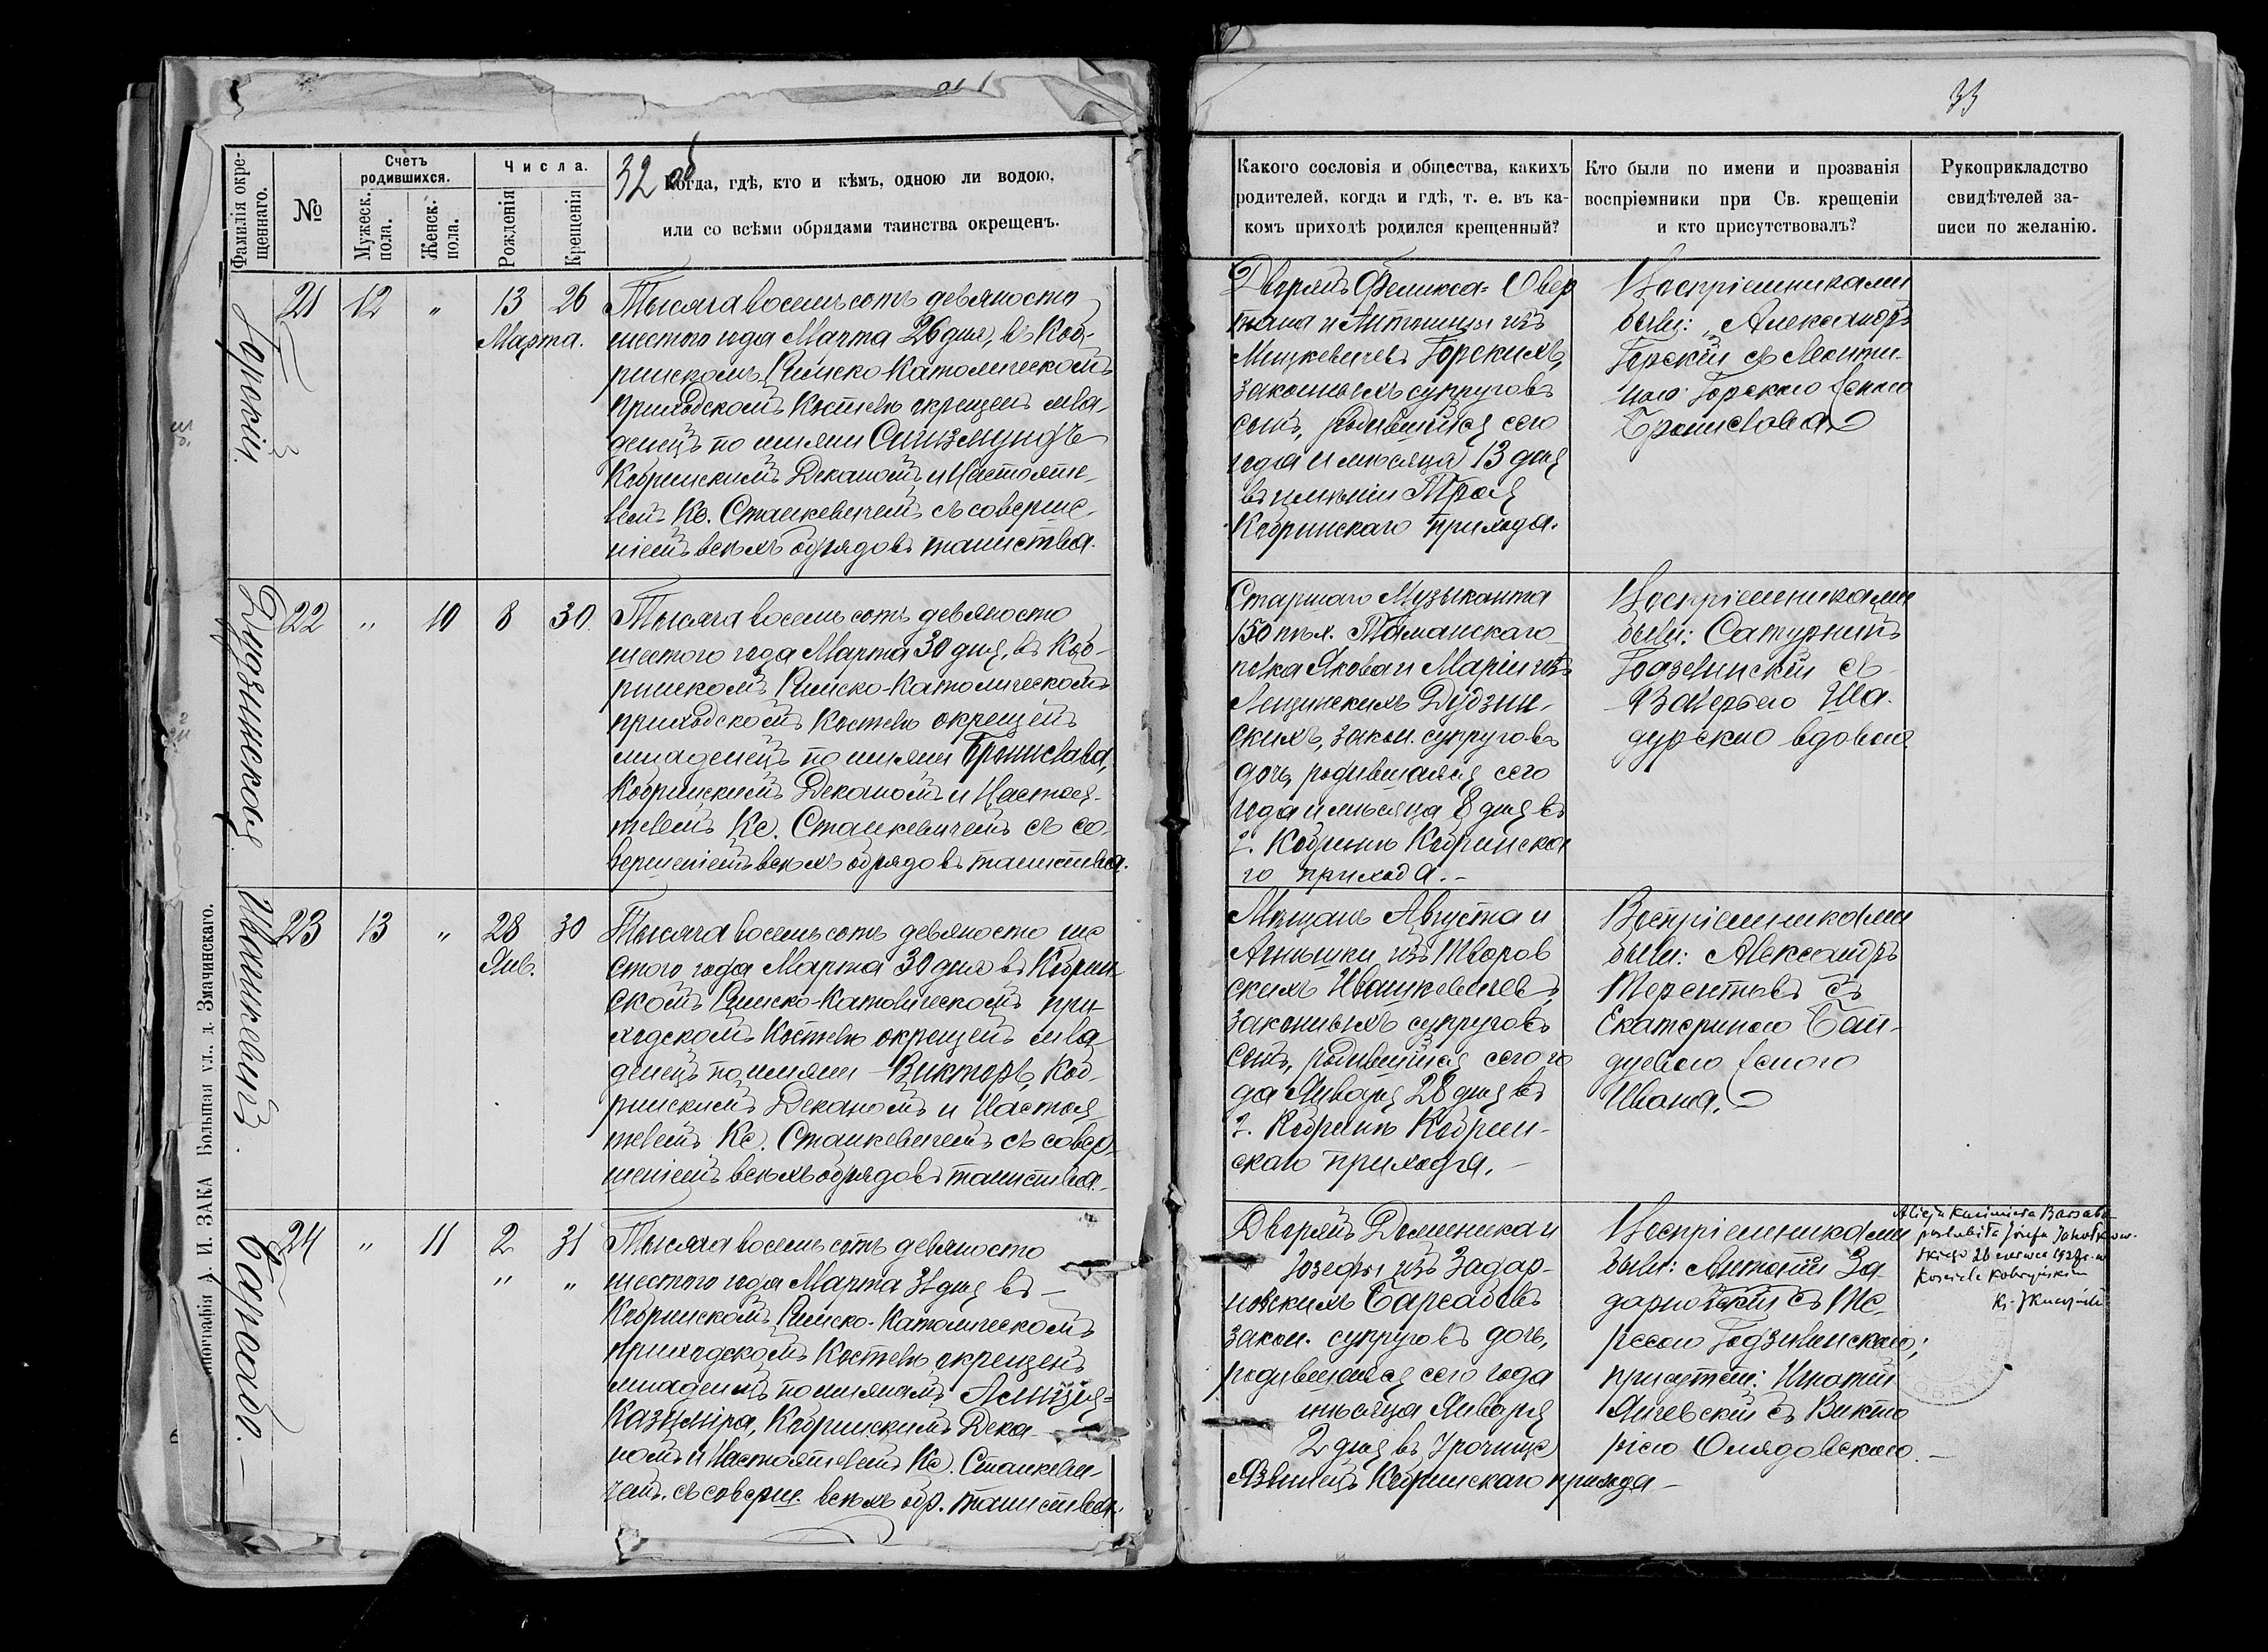 33
32 об
Фамилія окре-
щеннаго.
№
Счетъ
родившихся.
Мужеск.
пола.
Женск.
пола.
Числа.
Рожденія
Крещенія
Когда, гдѣ, кто и кѣмъ, одною ли водою,
или со всѣми обрядами таинства окрещенъ.
Какого сословія и общества, какихъ
родителей, когда и гдѣ, т. е. въ ка-
комъ приходѣ родился крещенный?
Кто были по имени и прозванія
воспріемники при Св. крещеніи
и кто присутствовалъ?
Рукоприкладство
свидѣтелей за-
писи по желанію.
Горскій
21 12 „ 13 26
Марта.
Тысяча восемьсотъ девяносто
шестого года Марта 26 дня, въ Коб-
ринскомъ Римско Католическомъ
приходскомъ Костелѣ окрещенъ мла-
денецъ по имени Сигизмундъ
Кобринскимъ Деканомъ и Настояте-
лемъ Кс. Станкевичемъ съ соверше-
ніемъ всѣхъ обрядовъ таинства.
Дворянъ Феликса-
и Антонины изъ
Мицкевичевъ Горскихъ,
законныхъ супруговъ
сынъ, родившійся сего
года и мѣсяца 13 дня
въ имѣніи
Кобринскаго прихода.
Воспріемниками
были: Александръ
Горскій съ Леонти-
ною Горскою женою
Бронислава
Дудзинская
22 „ 10 8 30
Тысяча восемьсотъ девяносто
шестого года Марта 30 дня, въ Коб-
ринскомъ Римско-Католическомъ
приходскомъ Костелѣ окрещенъ
младенецъ по имени Бронислава,
Кобринскимъ Деканомъ и Настоя-
телемъ Кс. Станкевичемъ съ со-
вершеніемъ всѣхъ обрядовъ таинства.
Старшаго Музыканта
150 пѣх. Таманскаго
полка Якова и Маріи изъ
Лещинскихъ Дудзин-
скихъ, закон. супруговъ
дочь, родившаяся сего
года и мѣсяца 8 дня въ
г. Кобринѣ Кобринска
го прихода.-
Воспріемниками
были: Сатурнинъ
Годзелинскій съ
Валеріею Ша-
дурскою вдовою
Ивашкевичъ
23 13 „ 28 30
Янв.
Тысяча восемьсотъ девяносто ше
стого года Марта 30 дня въ Кобрин-
скомъ Римско-Католическомъ при-
ходскомъ Костелѣ окрещенъ мла-
денецъ по имени Викторъ, Коб-
ринскимъ Деканомъ и Настоя-
телемъ Кс. Станкевичемъ съ совер-
шеніемъ всѣхъ обрядовъ таинства.
Мѣщанъ Августа и
Агнешки изъ Творов
скихъ Ивашкевичевъ,
законныхъ супруговъ
сынъ, родившійся сего го
да Января 28 дня въ
г. Кобринѣ Кобрин-
скаго прихода.
Воспріемниками
были: Александръ
Терентьевъ съ
Екатериною
женою
Ивана.
Барсобо.-
24 „ 11 2 31
„ „
Тысяча восемьсотъ девяносто
шестого года Марта 31 дня въ
Кобринскомъ Римско-Католическомъ
приходскомъ Костелѣ окрещенъ
младенецъ по именамъ Алиція-
Казиміра, Кобринскимъ Дека-
номъ и Настоятелемъ Кс. Станкеви-
чемъ съ соверш. всѣхъ обр. таинства.
Дворянъ Доминика и
Юзефы изъ Задар-
новскихъ Барсабовъ
закон. супруговъ дочь,
родившаяся сего года
мѣсяца Января
2 дня въ урочищѣ
Кобринскаго прихода
Воспріемниками
были: Антоній За-
дарновскій съ Те-
ресою Годзелинскою;
присутст: Игнатій
Янчевскій съ Викто
ріею Олядовскою.
Alicja Kazimiera Barsaba
poślubiła Józefa
26 czerwca 1927 r. w
kościele Kobryńskim
Типографія А. И. ЗАКА Большая ул., д. Змачинскаго.